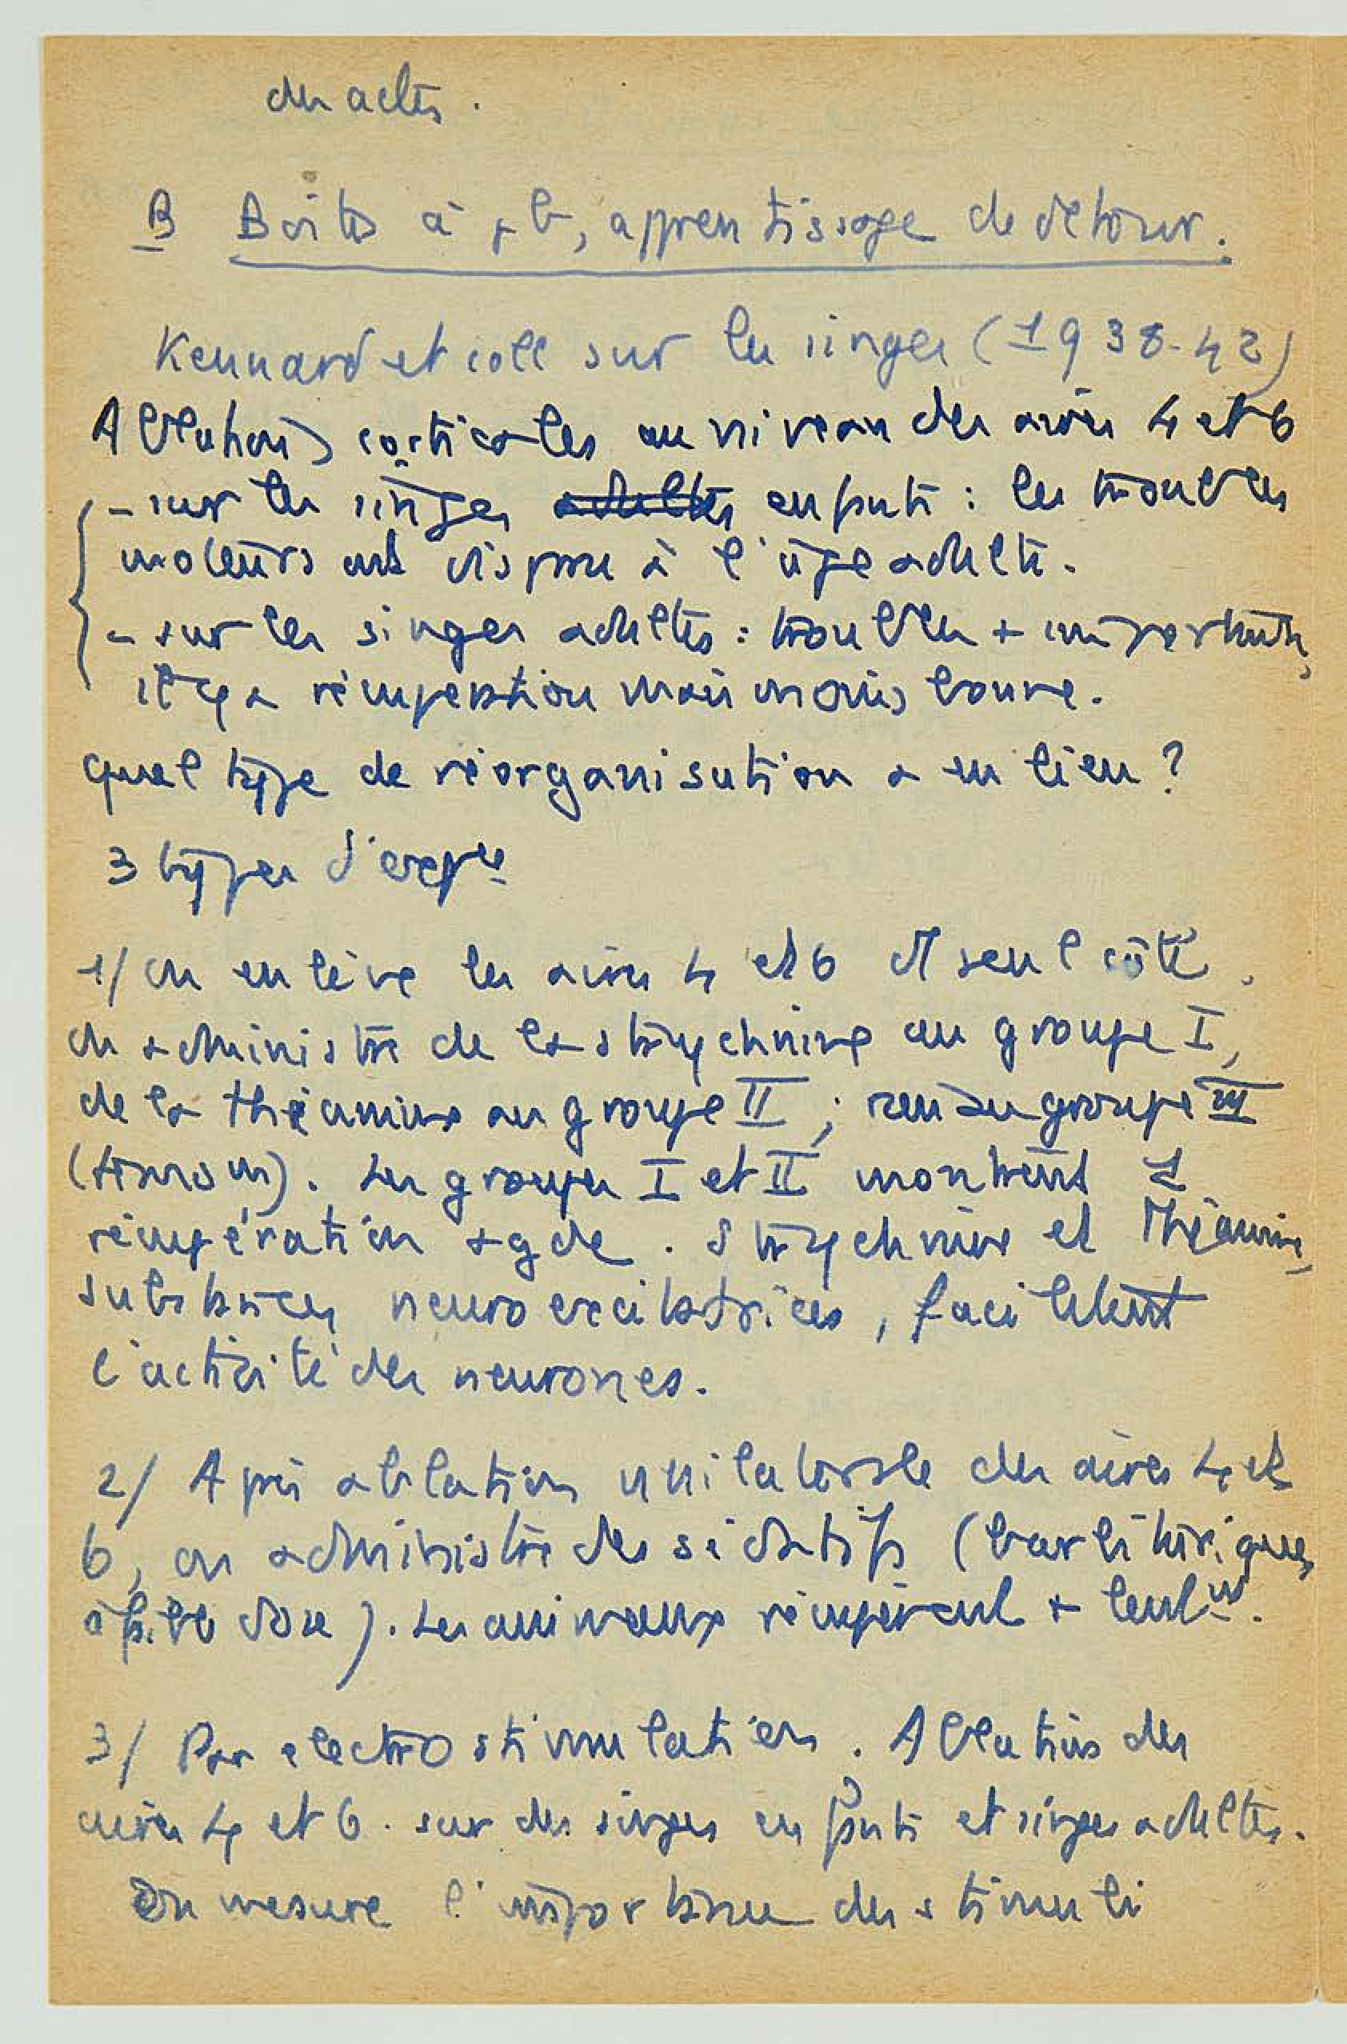 des actes.
B Boites à pb, apprentissage de detour.
Kennard et coll sur les singes (1938-42)
Ablations corticales au niveau des aires 4 et 6
- sur les singes enfants : les troubles
moteurs ont disparu à l'âge adulte.
- sur les singes adultes : troubles + importants,
il y a récupération mais moins bonne.
quel type de réorganisation a eu lieu ?
3 types d'expces
1/ on enlève les aires 4 et 6 d'1 seul côté.
on administre de la strychnine au groupe I,
de la théamine au groupe II ; rien au groupe III
(témoin). Les groupes I et II montrent 1
récupération + gde. Strychnine et Théamine,
substances neuroexcitatrices, facilitent
l'activité des neurones.
2/ Après ablation unilatérale des aires 4 et
6, on administre des sédatifs (barbituriques
à faible dose). Les animaux récupèrent + lentmt.
3/ Par electrostimulation. Ablations des
aires 4 et 6. sur des singes enfants et singes adultes.
On mesure l'importance des stimuli